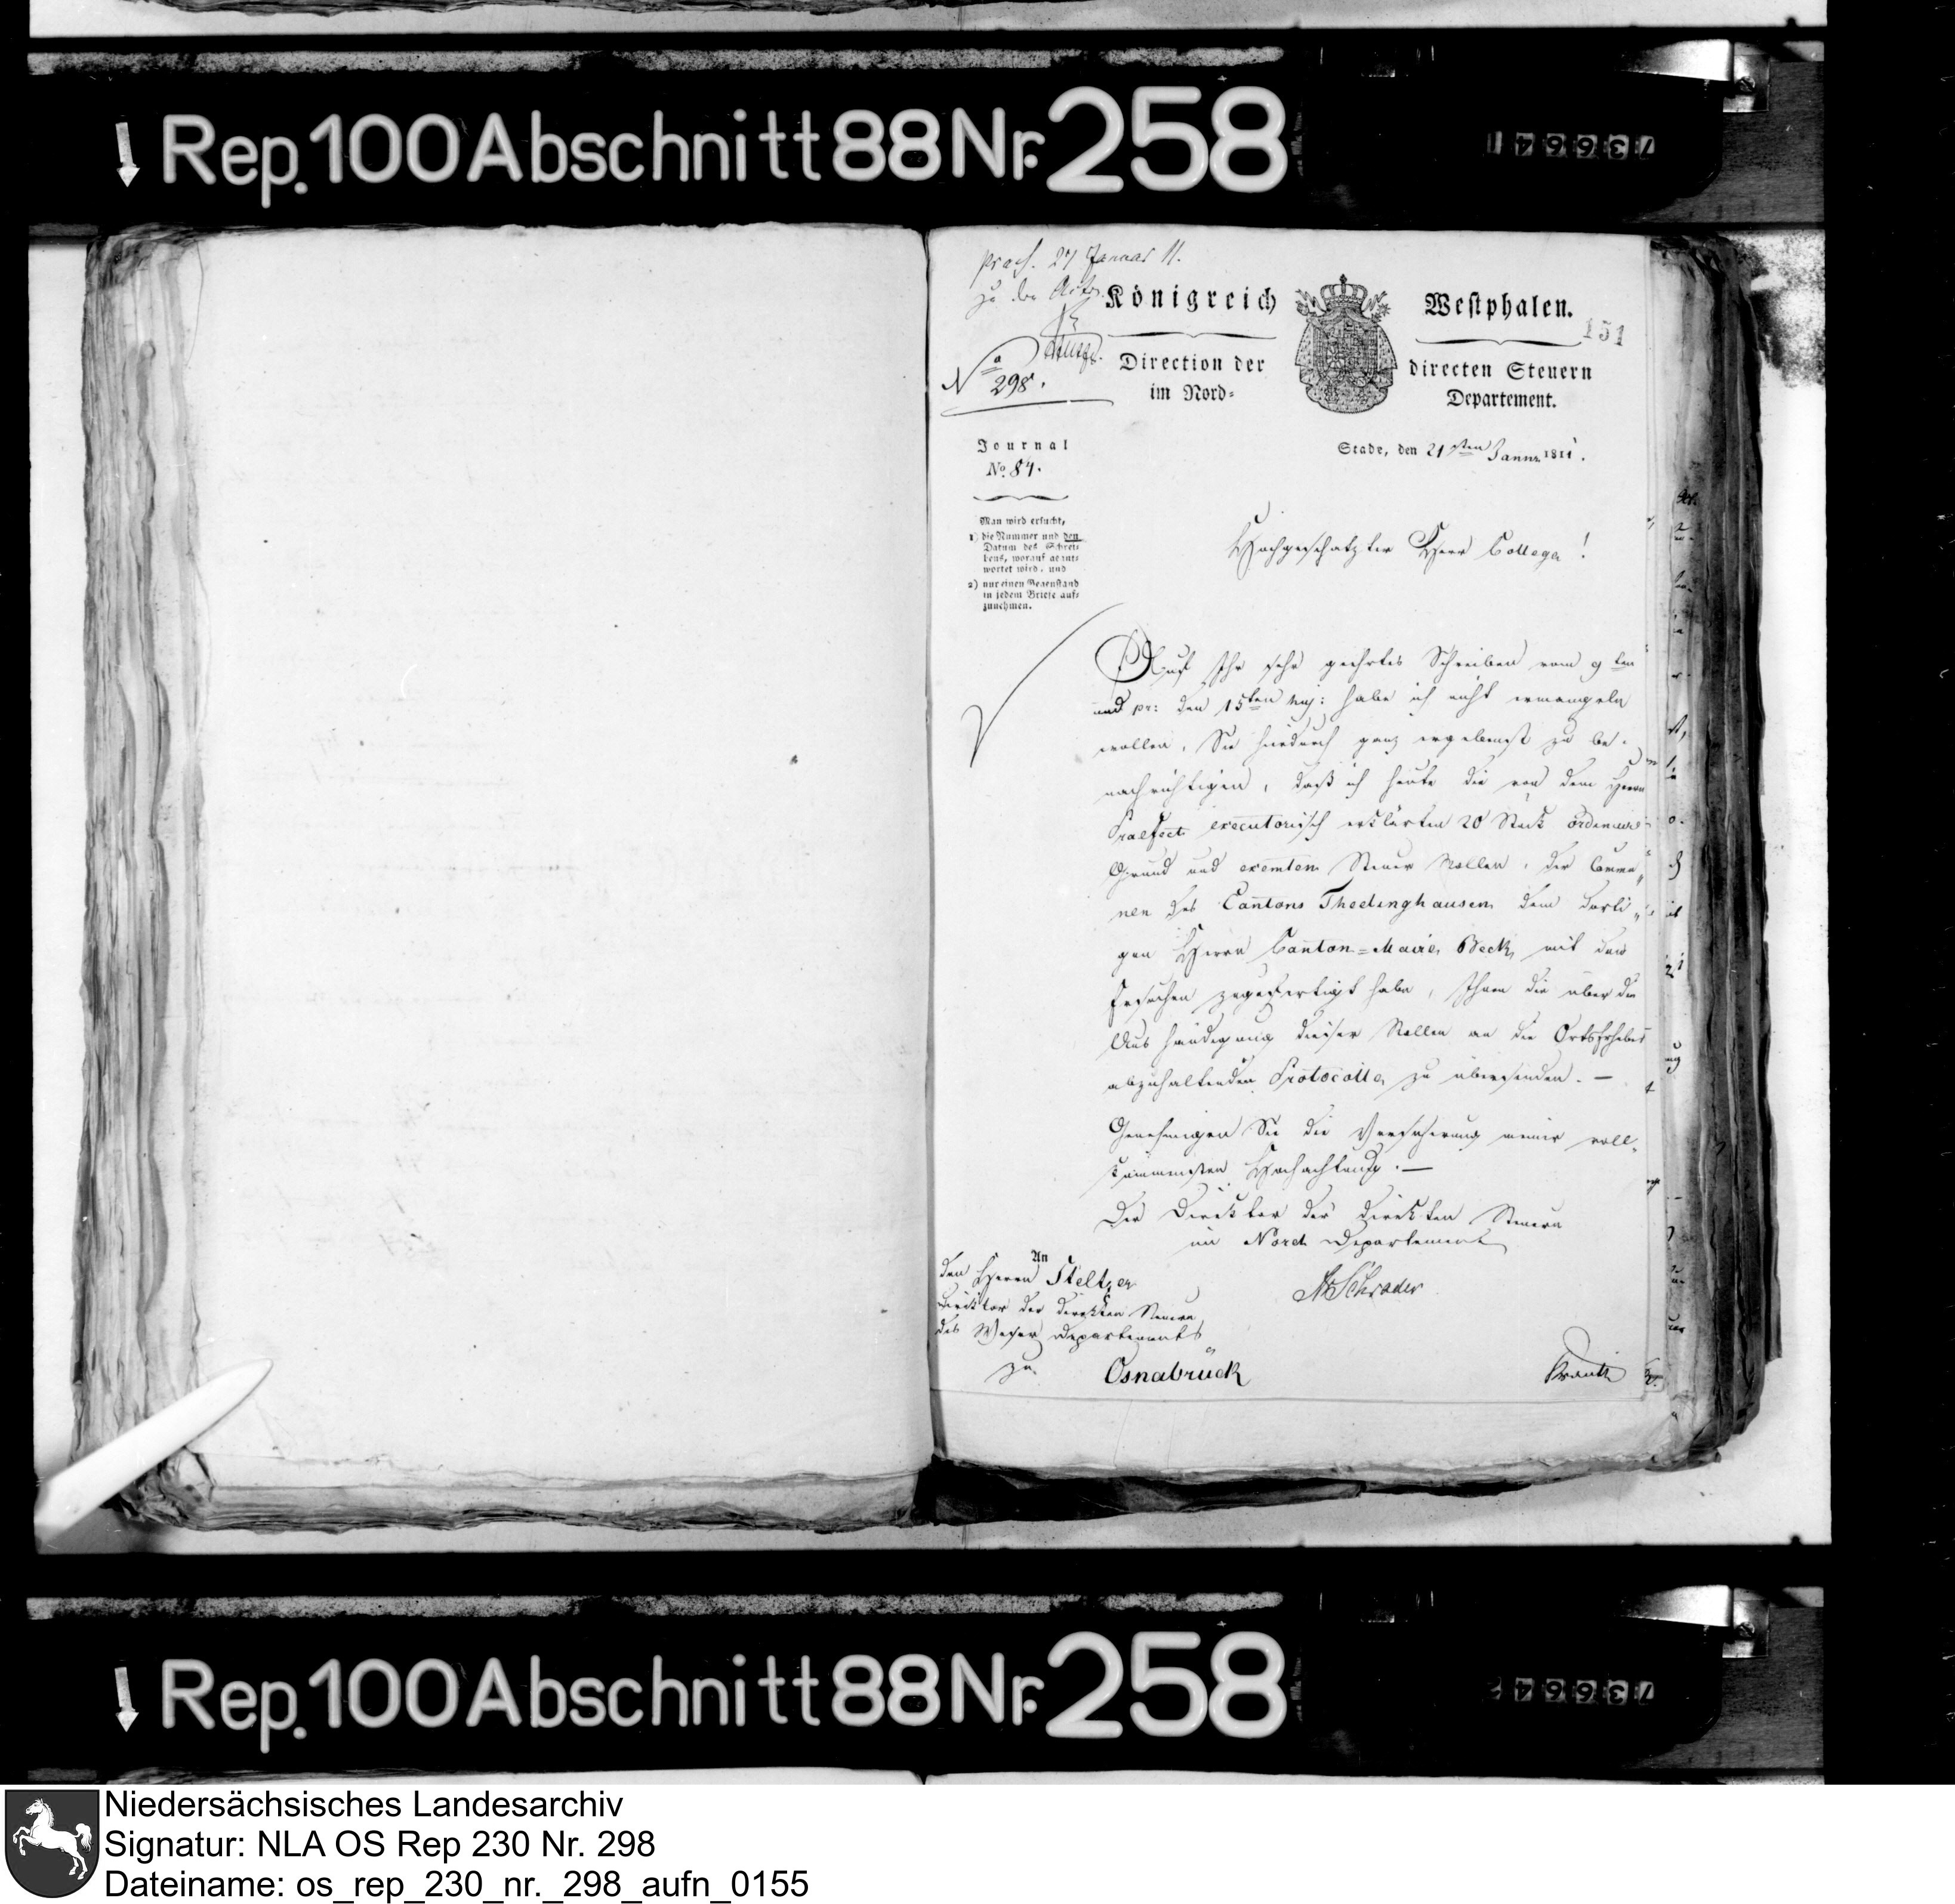 Rep. 100 Abschnitt 88 Nr. 258
praes. 27 Januar 11.
zu den Acten
Königreich Westphalen.
151
No 298.
Direction der directen Steuern
im Nord- Departement.
Journal
No. 84.
Stade, den 21sten Januar 1811.
Man wird ersucht,
1) die Nummer und den
Datum des Schrei-
bens, worauf geant-
wortet wird, und
2) nur einen Gegenstand
in jedem Briefe auf-
zunehmen.
Hochgeschätzter Herr College!
Auf Ihr sehr geehrtes Schreiben vom 9ten
und pr: den 15ten huj: habe ich nicht ermangeln
wollen, Sie hiedurch ganz ergebenst zu be-
nachrichtigen, daß ich heute die von dem Herrn
Praefect executorisch erklärten 20 Stück ordinaire
Grund und exemten Steuer Rollen, der Commu-
nen des Cantons Thedinghausen dem dorti-
gen Herrn Canton=Maire Beck, mit dem
Ersuchen zugefertigt habe, Ihnen die über die
Aushändigung dieser Rollen an die Ortserheber
abzuhaltenden Protocolle zu übersenden. —
Genehmigen Sie die Versicherung meiner voll-
kommensten Hochachtung. —
Der Direktor der direkten Steuern
im Nord Departement
Schrader
An
den Herrn Steltzer
Direktor der direkten Steuern
des Weser Departements
zu Osnabrück
Rep. 100 Abschnitt 88 Nr. 258
Niedersächsisches Landesarchiv
Signatur: NLA OS Rep 230 Nr. 298
Dateiname: os_rep_230_nr._298_aufn_0155